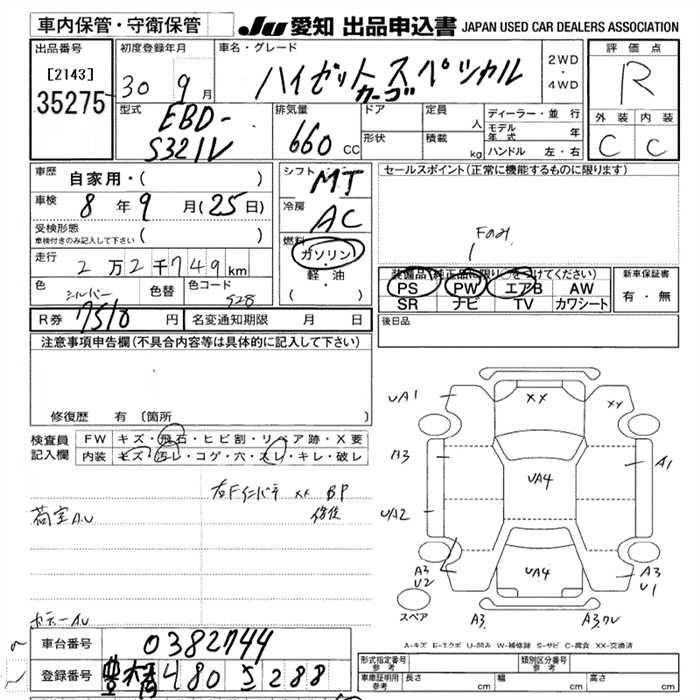 車内保管・守衛保管
JU 愛知 出品申込書 JAPAN USED CAR DEALERS ASSOCIATION
出品番号
[2143]
35275
初度登録年月
30 9月
車名・グレード
ハイゼットカーゴ スペシャル
2WD
・
4WD
評価点
R
外装 内装
C C
型式
EBD-
S321V
排気量
660 cc
ドア
形状
定員 人
積載 kg
ディーラー・並行
モデル年式 年
ハンドル 左・右
車歴
自家用・( )
車検 8年 9月 (25日)
受検形態
車検付きのみ記入して下さい ( )
走行
2万2千749km
色 シルバー 色替 色コード S28
R券 7510 円 名変通知期限 月 日
シフト MT
冷房 AC
燃料
ガソリン
・
軽油
( )
セールスポイント(正常に機能するものに限ります)
Fのみ
装備品(純正品に限り○をつけてください)
PS PW エアB AW
SR ナビ TV カワシート
新車保証書
有・無
後日品
注意事項申告欄(不具合内容等は具体的に記入して下さい)
修復歴 有 (箇所
検査員記入欄
FW キズ・飛石・ヒビ割・リペア跡・X要
内装 キズ・汚レ・コゲ・穴・スレ・キレ・破レ
右Fインパネ XX BP
修復
荷室AU
UA1
XX
XX
A3
A1
UA4
UA2
A3
U2
UA4
A3
U1
スペア
A3
A3,ワレ
A-キズ E-エクボ U-凹み W-補修跡 S-サビ C-腐食 XX-交換済
車台番号 0382744
登録番号 豊橋 480 さ 288
形式指定番号
参考
類別区分番号
参考
車庫証明用
参考
長さ cm 幅 cm 高さ cm